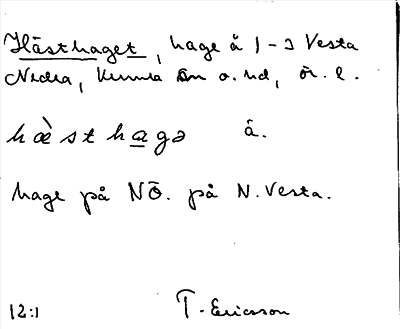 Hästhaget, hage å 1-3 Vesta
Nedra, Kumla sn o. hd, Ör. l.
hæ̀sthagə å.
hage på NÖ. på N. Vesta.
12:1 T. Ericsson